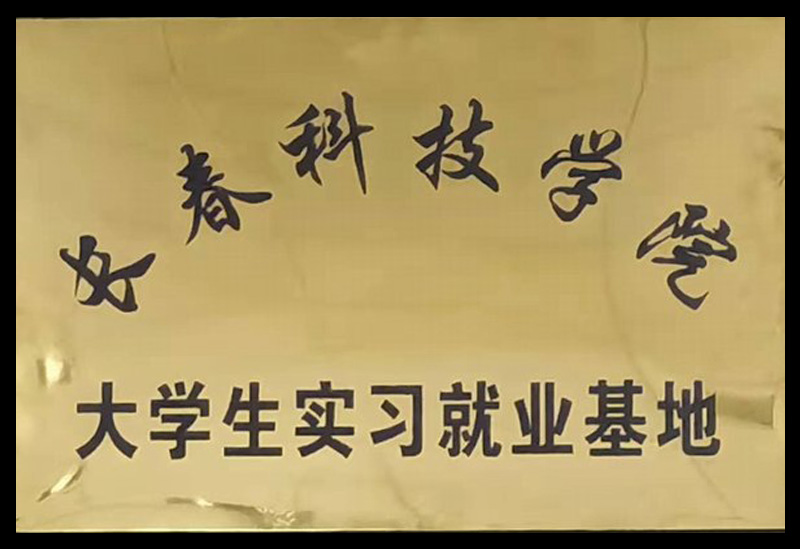 长春科技学院
大学生实习就业基地